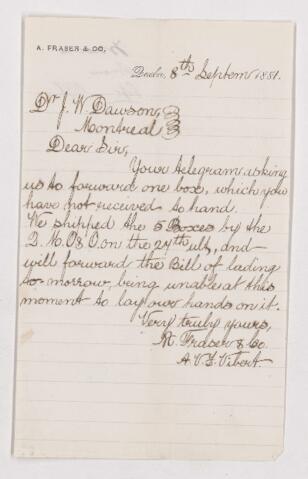 A. FRASER & CO.
Quebec, 8th Septem 1881.
Dr J. W. Dawson,
Montreal
Dear Sir,
Your telegram asking
us to forward one box, which you
have not received to hand.
We shipped the 5 Boxes by the
Q. M. O & O. on the 27th ult, and
will forward the Bill of lading
to-morrow, being unable at this
moment to lay our hands on it.
Very truly yours,
A. Fraser & Co.
A. V. J. Vibert.